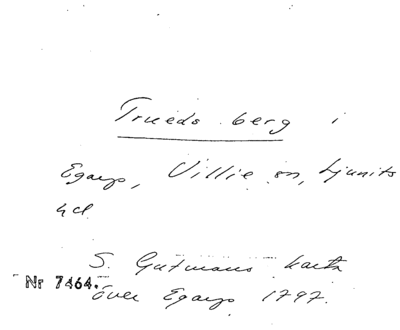 Trueds berg i
Egarp, Villie sn, Ljunits
hd
S. Gutmans karta
Nr 7464.
över Egarp 1797.